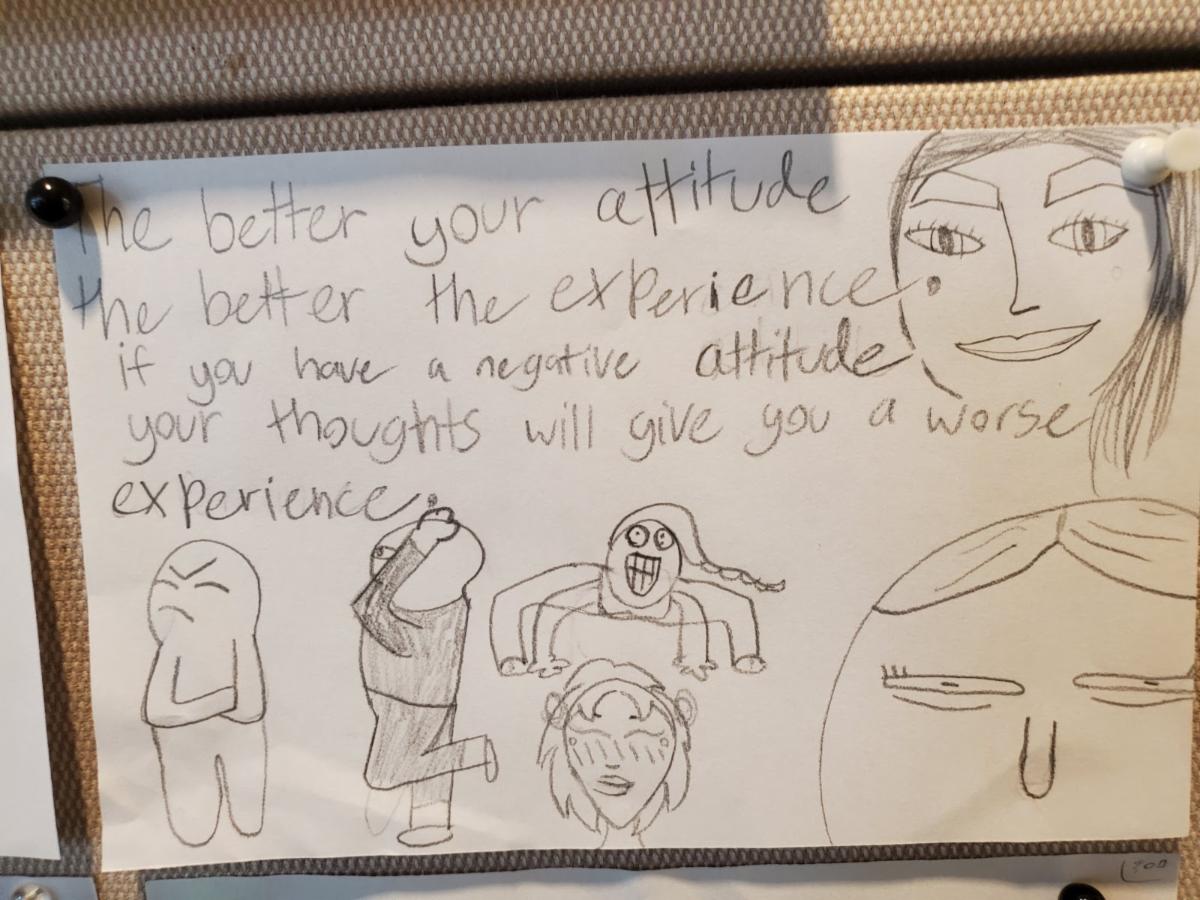 The better your attitude
the better the experience.
if you have a negative attitude
your thoughts will give you a worse
experience.